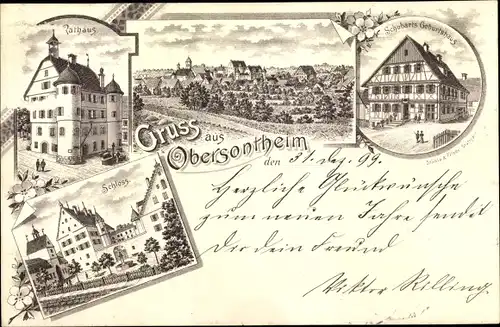 Rathaus
Schubarts Geburtshaus
Gruss aus
Obersontheim
den 31 Dez. 99.
Schloss
Herzliche Glückwünsche
zum neuen Jahre sendet
Dir dein Freund
Viktor Rilling.